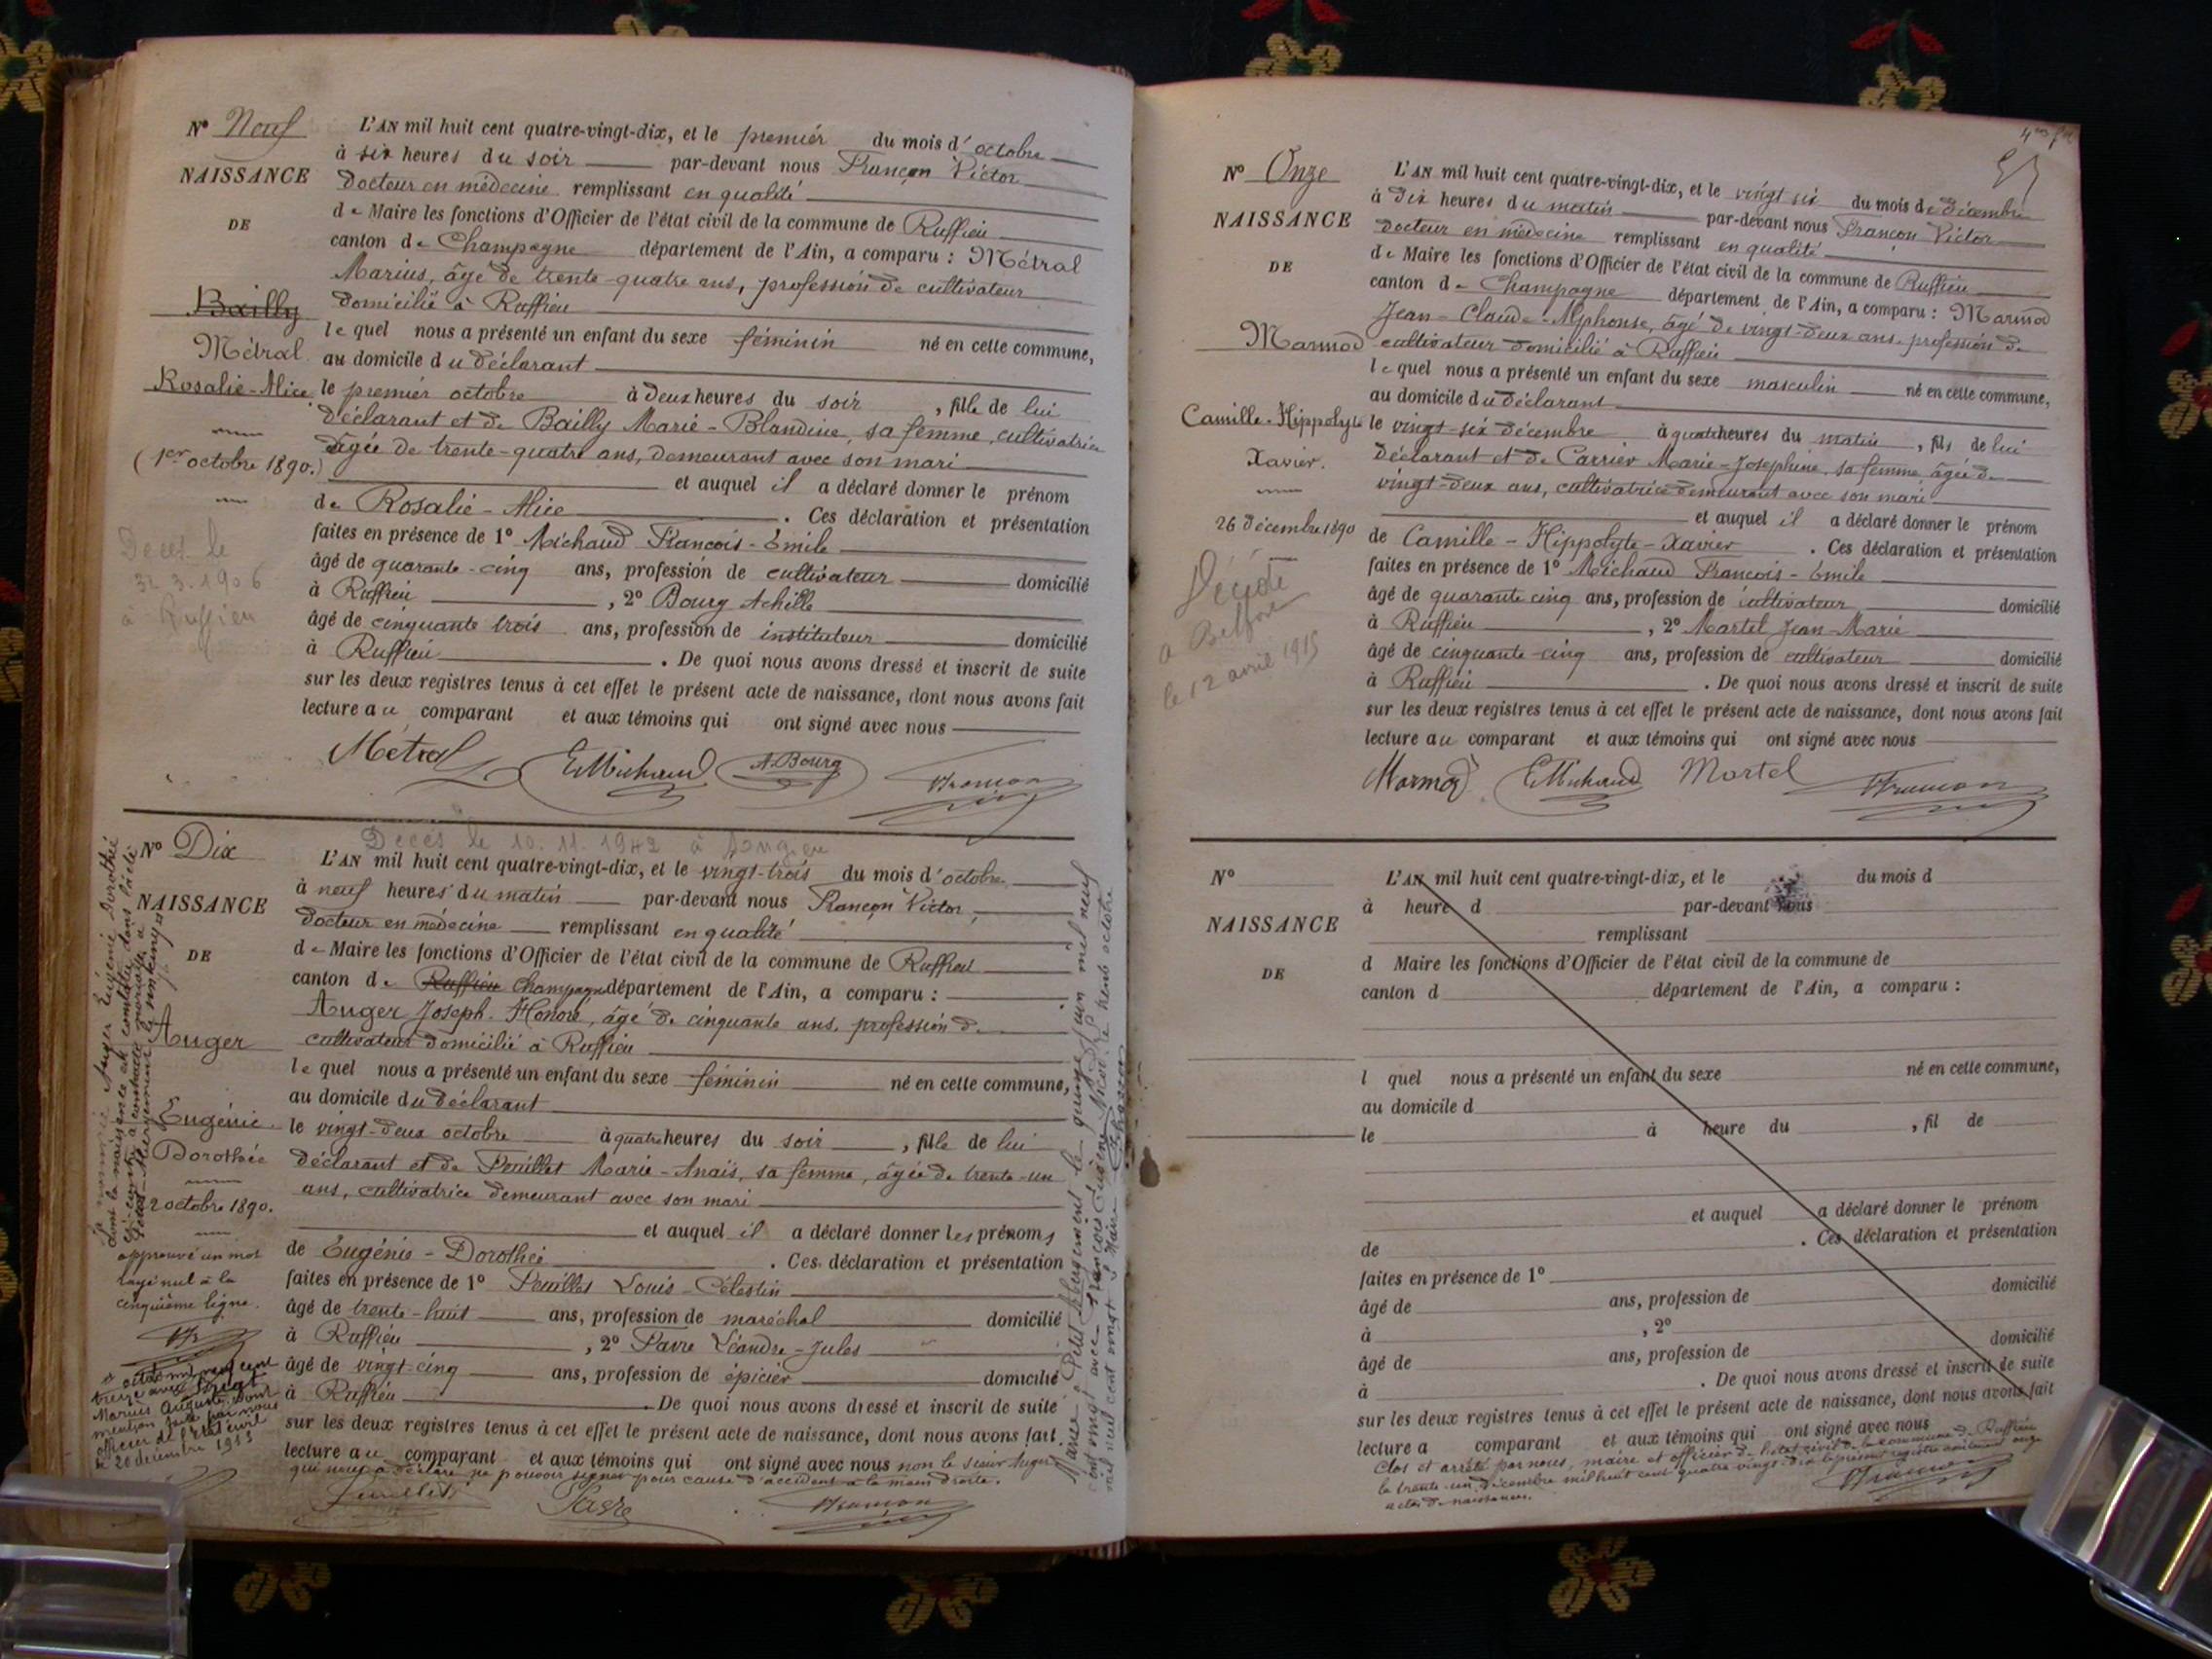 Nº Neuf
NAISSANCE
DE
Bailly
Métral
Rosalie-Alice
(1er octobre 1890.)
Décès le
31.3.1906
à Ruffieu
L'AN mil huit cent quatre-vingt-dix, et le premier du mois d'octobre
à six heures du soir par-devant nous Françon Victor
docteur en médecine remplissant en qualité
de Maire les fonctions d'Officier de l'état civil de la commune de Ruffieu
canton de Champagne département de l'Ain, a comparu : Métral
Marius, âgé de trente-quatre ans, profession de cultivateur
domicilié à Ruffieu
lequel nous a présenté un enfant du sexe féminin né en cette commune,
au domicile du déclarant
le premier octobre à deux heures du soir, fille de lui
déclarant et de Bailly Marie-Blandine, sa femme, cultivatrice
âgée de trente-quatre ans, demeurant avec son mari
et auquel il a déclaré donner le prénom
de Rosalie-Alice. Ces déclaration et présentation
faites en présence de 1º Michaud François-Emile
âgé de quarante-cinq ans, profession de cultivateur domicilié
à Ruffieu, 2º Bourg Achille
âgé de cinquante trois ans, profession de instituteur domicilié
à Ruffieu. De quoi nous avons dressé et inscrit de suite
sur les deux registres tenus à cet effet le présent acte de naissance, dont nous avons fait
lecture au comparant et aux témoins qui ont signé avec nous
Métral E Michaud A. Bourg Vfrançon
Décès le 10.11.1942 à Songieu
Nº Dix
NAISSANCE
DE
Auger
Eugénie
Dorothée
22 octobre 1890.
approuvé un mot
rayé nul à la
cinquième ligne.
La nommée Auger Eugénie Dorothée
dont la naissance est constatée dans l'acte
ci-contre a contracté mariage à
octobre mil neuf cent
treize avec
Marius Auguste. Dont
mention faite par nous
officier de l'état civil
le 20 décembre 1913
L'AN mil huit cent quatre-vingt-dix, et le vingt-trois du mois d'octobre
à neuf heures du matin par-devant nous Françon Victor,
docteur en médecine remplissant en qualité
de Maire les fonctions d'Officier de l'état civil de la commune de Ruffieu
canton de Ruffieu Champagne département de l'Ain, a comparu :
Auger Joseph-Honoré, âgé de cinquante ans, profession de
cultivateur domicilié à Ruffieu
lequel nous a présenté un enfant du sexe féminin né en cette commune,
au domicile du déclarant
le vingt-deux octobre à quatre heures du soir, fille de lui
déclarant et de Peuillet Marie-Anaïs, sa femme, âgée de trente-un
ans, cultivatrice demeurant avec son mari
et auquel il a déclaré donner les prénoms
de Eugénie-Dorothée. Ces déclaration et présentation
faites en présence de 1º Peuillet Louis-Célestin
âgé de trente-huit ans, profession de maréchal domicilié
à Ruffieu, 2º Pavre Léandre-Jules
âgé de vingt-cinq ans, profession de épicier domicilié
à Ruffieu. De quoi nous avons dressé et inscrit de suite
sur les deux registres tenus à cet effet le présent acte de naissance, dont nous avons fait
lecture au comparant et aux témoins qui ont signé avec nous non le sieur Auger
qui nous a déclaré ne pouvoir signer pour cause d'accident à la main droite.
Vfrançon
Mariée à Petit Abergement le quinze juin mil neuf
cent vingt avec François Eugène Nicod. Le trente octobre
mil neuf cent vingt. Le Maire
Nº Onze
NAISSANCE
DE
Marmod
Camille-Hippolyte
Xavier.
26 décembre 1890
Décédé
à Belfort
le 12 avril 1915
L'AN mil huit cent quatre-vingt-dix, et le vingt six du mois de décembre
à dix heures du matin par-devant nous Françon Victor
docteur en médecine remplissant en qualité
de Maire les fonctions d'Officier de l'état civil de la commune de Ruffieu
canton de Champagne département de l'Ain, a comparu : Marmod
Jean-Claude-Alphonse, âgé de vingt-deux ans, profession de
cultivateur domicilié à Ruffieu
lequel nous a présenté un enfant du sexe masculin né en cette commune,
au domicile du déclarant
le vingt-six décembre à quatre heures du matin, fils de lui
déclarant et de Carrier Marie-Joséphine sa femme âgée de
vingt-deux ans, cultivatrice demeurant avec son mari
et auquel il a déclaré donner le prénom
de Camille-Hippolyte-Xavier. Ces déclaration et présentation
faites en présence de 1º Michaud François-Emile
âgé de quarante cinq ans, profession de cultivateur domicilié
à Ruffieu, 2º Martel Jean-Marie
âgé de cinquante-cinq ans, profession de cultivateur domicilié
à Ruffieu. De quoi nous avons dressé et inscrit de suite
sur les deux registres tenus à cet effet le présent acte de naissance, dont nous avons fait
lecture au comparant et aux témoins qui ont signé avec nous
Marmod E Michaud Martel Vfrançon
Nº
NAISSANCE
DE
L'AN mil huit cent quatre-vingt-dix, et le du mois d
à heure d par-devant nous
remplissant
d Maire les fonctions d'Officier de l'état civil de la commune de
canton d département de l'Ain, a comparu :
l quel nous a présenté un enfant du sexe né en cette commune,
au domicile d
le à heure du , fil de
et auquel a déclaré donner le prénom
de . Ces déclaration et présentation
faites en présence de 1º domicilié
âgé de ans, profession de
à , 2º
âgé de ans, profession de domicilié
à . De quoi nous avons dressé et inscrit de suite
sur les deux registres tenus à cet effet le présent acte de naissance, dont nous avons fait
lecture a comparant et aux témoins qui ont signé avec nous
Clos et arrêté par nous, maire et officier de l'état civil de la commune de Ruffieu
le trente-un décembre mil huit cent quatre vingt-dix le présent registre contenant onze
actes de naissances.
Vfrançon